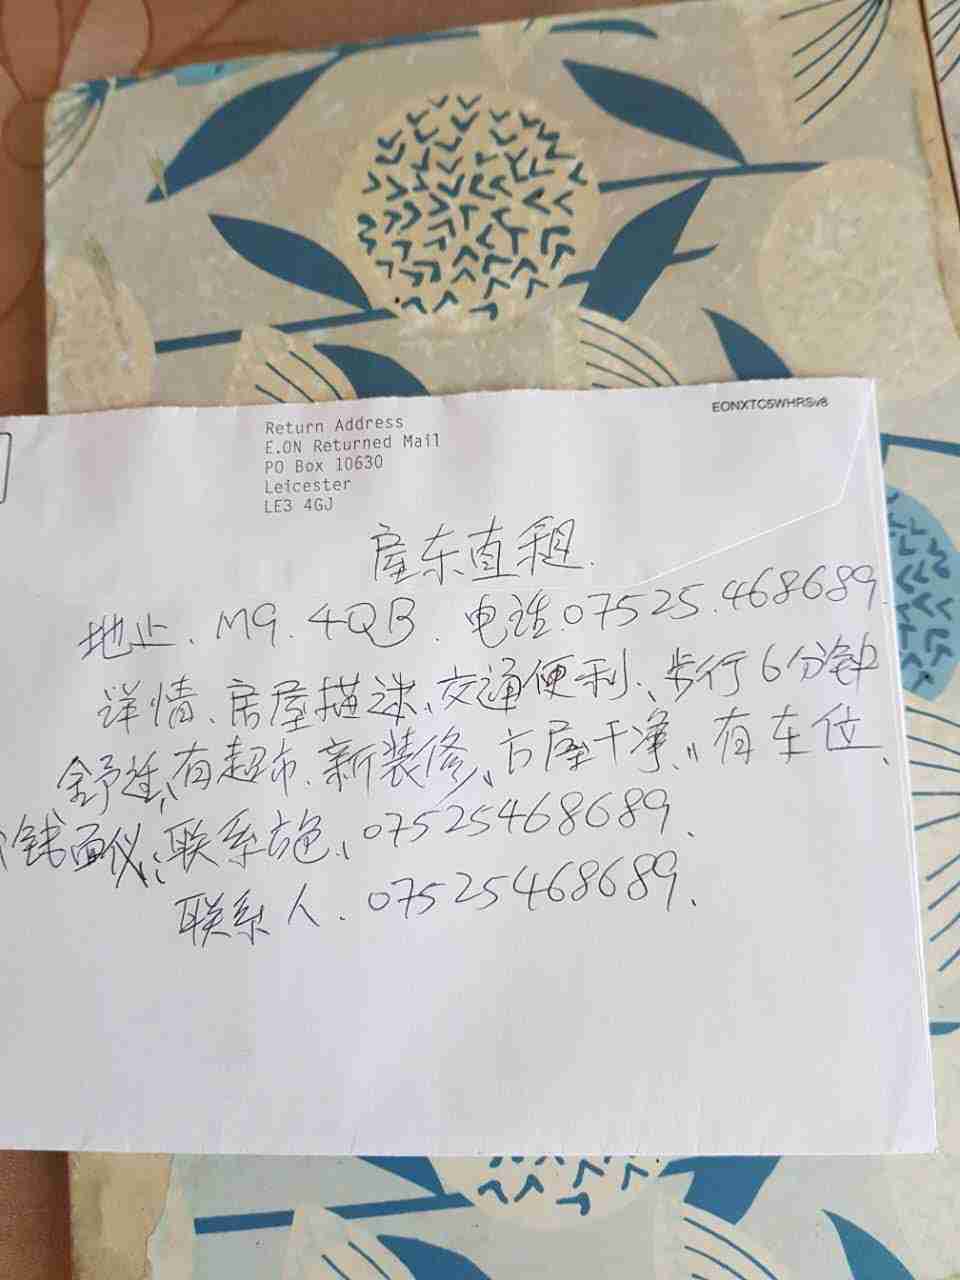 EONXTC5WHRSv8
Return Address
E.ON Returned Mail
PO Box 10630
Leicester
LE3 4GJ
房东直租.
地止.M9.4QB.电话.07525.468689.
详情、房屋描述、交通便利、步行6分钟
舒适、有超市、新装修、方屋干净、有车位、
钱面仪、联系 07525468689.
联系人.07525468689.